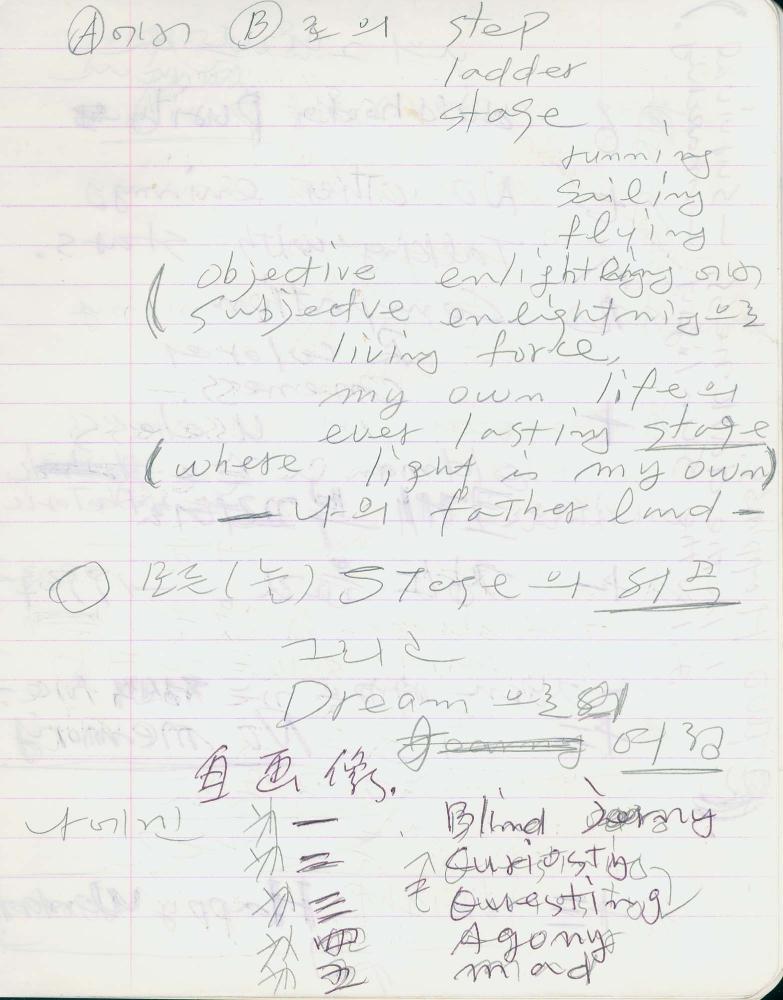 Ⓐ에서 Ⓑ로의 step
ladder
stage
running
sailing
flying
( objective enlightning 에서
( subjectve enlightning으로
living force,
my own life의
ever lasting stage
(where light is my own)
— 나의 father land —
○ 모든(는) Stage의 허무
그리고
Dream 으로의
여정
自画像.
나에겐 第一. Blind
第二 Curiosity
第三 Questing
第四 Agony
第五 mad